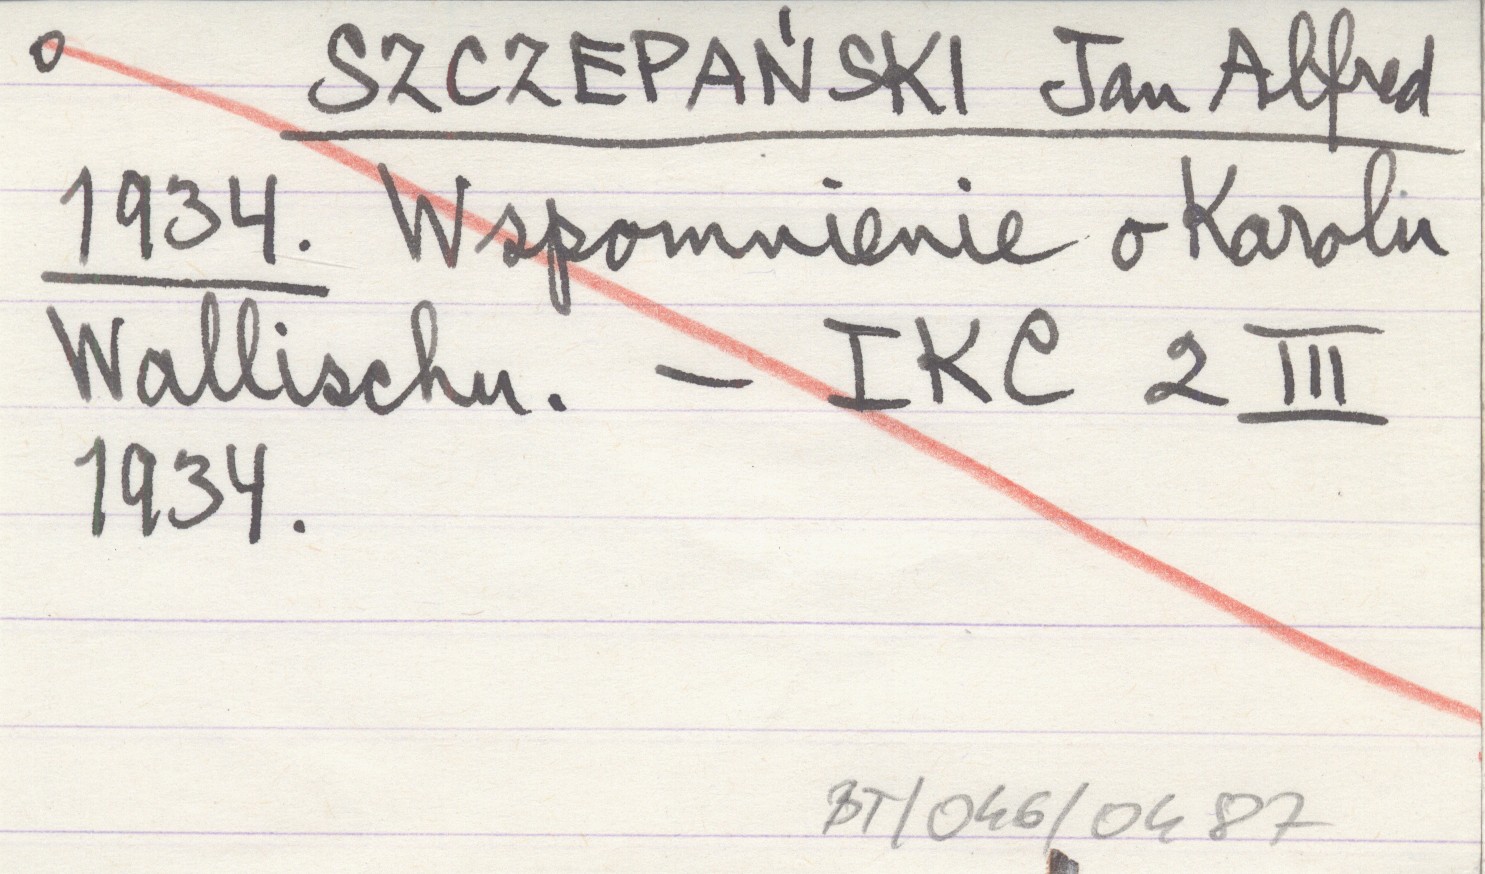 o SZCZEPAŃSKI Jan Alfred
1934. Wspomnienie o Karolu
Wallischu. – IKC 2 III
1934.
BT/046/0487